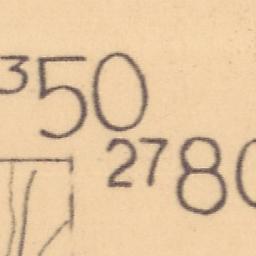 350
2780